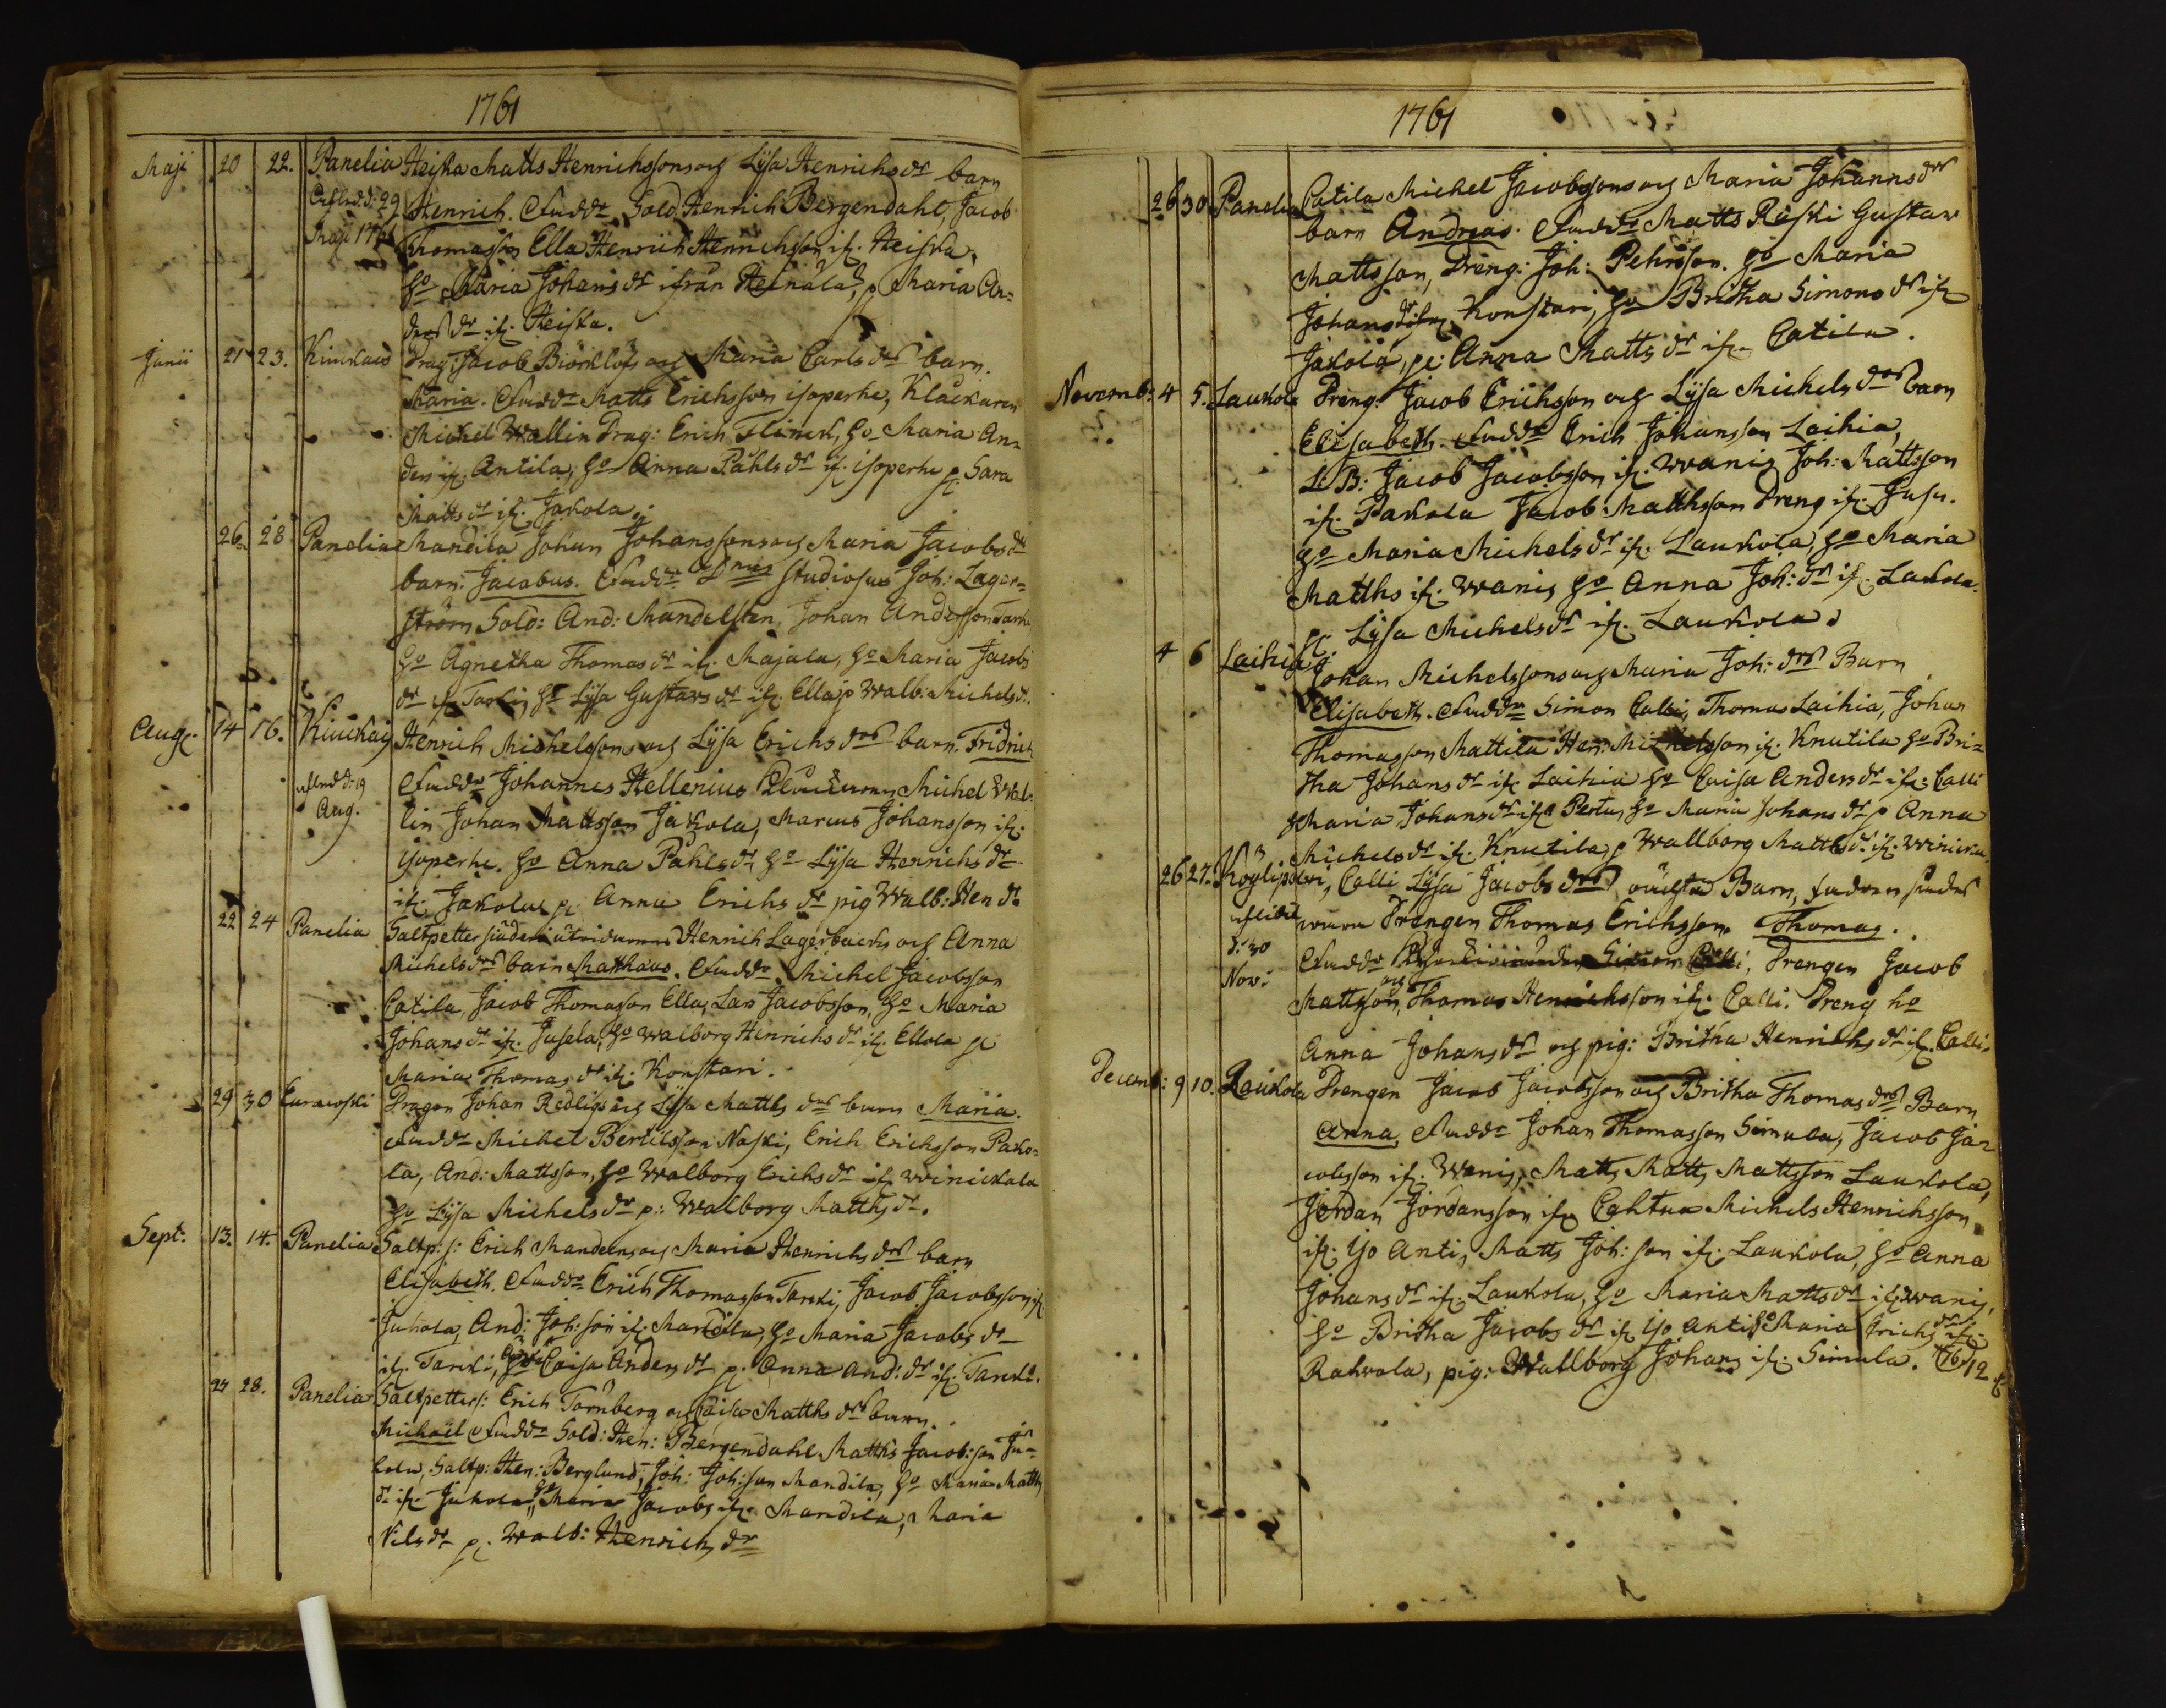 1761
Maji 20 22. Panelia Heiska Matts Henrichssons och Lysa Henrichs dr barn
d: 29 Henrich. Fadd: Sold. Henrich Bergendahl, Jacob
Maji 1761 Thomasson Ella Henrich Henrichson if. Heiska,
ho Maria Johans dr ifrån Heinälä, p Maria An=
ders dr if. Heiska.
Junii 21 23. Kiuckais Drag: Jacob Biörklöfs och Maria Carls drs barn.
Maria. Fadd: Matts Erichsson isoperhe, Kläckaren
Michel Wallin Drag: Erich Flinck, ho Maria An=
ders if. Antila, ho Anna Påhls dr if. isoperhe p. Sara
Matts dr if. Jakola.
26 28 Panelia Mandila Johan Johanssons och Maria Jacobs drs
barn. Jacobus. Fadd: Dnus Studiosus Joh: Lager=
ström Sold: And: Mandelsten, Johan Andersson
ho Agnetha Thomas dr if. Majala, ho Maria Jacobs
dr if. ho Lysa Gustavs dr if. Ella p Walb: Michels d:
Aug. 14 16. Kiuckais Henrich Michelssons och Lysa Erichs drs barn. Fridrich
d: 19 Fadd: Johannes Hellenius Michel Wal=
Aug. lin Johan Mattsson Jakola, Marcus Johansson if.
isoperhe. ho Anna Påhls dr ho Lysa Henrichs dr
if. Jakola p. Anna Erichs dr pig Walb: Hen dr
22 24 Panelia Saltpetter Henrich Lagerbäcks och Anna
Michels drs barn Matthæus. Fadd: Michel Jacobsson
Catila, Jacob Thomasson Ella, Lars Jacobsson, ho Maria
Johans dr if. Jusela, ho Walborg Henrichs dr if. Ellola p
Maria Thomas dr if. Konstari.
29 30 Euracoski Dragon Johan Redligs och Lysa Matths drs barn Maria.
Fadd: Michel Bertilsson Naski, Erich Erichsson Pako=
la, And: Mattsson, ho Walborg Erichs dr if. Winickala
ho Lysa Michels dr p: Walborg Matths dr.
Sept: 13. 14. Panelia Saltp: s: Erich Mandelins och Maria Henrichs drs barn
Elisabeth. Fadd: Erich Thomasson Tarcki, Jacob Jacobsson if
Juhola, And: Joh: son if. Mandila, ho Maria Jacobs dr
if. Tarcki, Caisa Anders dr p. Anna And: dr if. Tarcki.
27 28. Panelia Saltpetters: Erich Tornberg och Caisa Matths drs barn.
Michaël Fadd: Sold: Hen: Bergendahl Matths Jacob: son Ju=
hola, Saltp: Hen: Berglund, Joh: Joh: son Mandila, ho Maria Matths
dr if. Juhola, ho Maria Jacobs if. Mandila, Maria
Nils dr p. Walb: Henrichs dr
1761
26 30 Panelia Catila Michel Jacobssons och Maria Johanns drs
barn Andreas. Fadd: Matts Raski Gustav
Mattsson, Dreng: Joh: Pehrsson. ho Maria
Johans dr if. Konstari, ho Britha Simons dr if
Jakola, p: Anna Matts dr if. Catila.
Novemb: 4 5. Laukola Dreng: Jacob Erichsson och Lysa Michels drs barn
Elisabeth. Fadd: Erich Johansson Laihia,
L: B: Jacob Jacobsson if. Wanis Joh: Mattsson
if. Pakola Jacob: Matthsson Dreng if. Jusu.
ho Maria Michels dr if. Laukola, ho Maria
Matths if. Wanis ho Anna Joh: dr if. Laukola.
p. Lysa Michels dr if. Laukola.
4 6 Laihia Johan Michelssons och Maria Joh: drs Barn
Elisabeth. Fadd: Simon Calli, Thomas Laihia, Johan
Thomasson Mattila Hen: Michelsson if. Knutila ho Bri=
tha Johans dr if. Laihia ho Caisa Anders dr if. Calli
Maria Johans dr if. Pertu, ho Maria Johans dr p Anna
Michels dr if. Knutila, p Wallborg Matths dr if.
26 27. Köylipolvi, Calli Lysa Jacobs drs oächta Barn,
Drengen Thomas Erichsson. Thomas.
d: 30 Fadd: Simon Calli, Drengen Jacob
Nov: Mattsson, och Thomas Henrichsson if. Calli. Dreng ho
Anna Johans dr och pig: Britha Henrichs dr if. Calli.
Decemb: 9 10. Laukola Drengen Jacob Jacobsson och Britha Thomas drs Barn
Anna, Fadd: Johan Thomasson Simula, Jacob Ja=
cobsson if. Wanis, Matts Matts Mattsson Laukola,
Jordan Jordansson if. Cahtua Michels Henrichsson
if. Yo Anti, Matts Joh: son if. Laukola, ho Anna
Johans dr if. Laukola, ho Maria Matts dr if. Wanis,
ho Britha Jacobs dr if Yo anti ho Maria Erichs dr if.
Rahvola, pig: Wallborg Johans if. Simula.